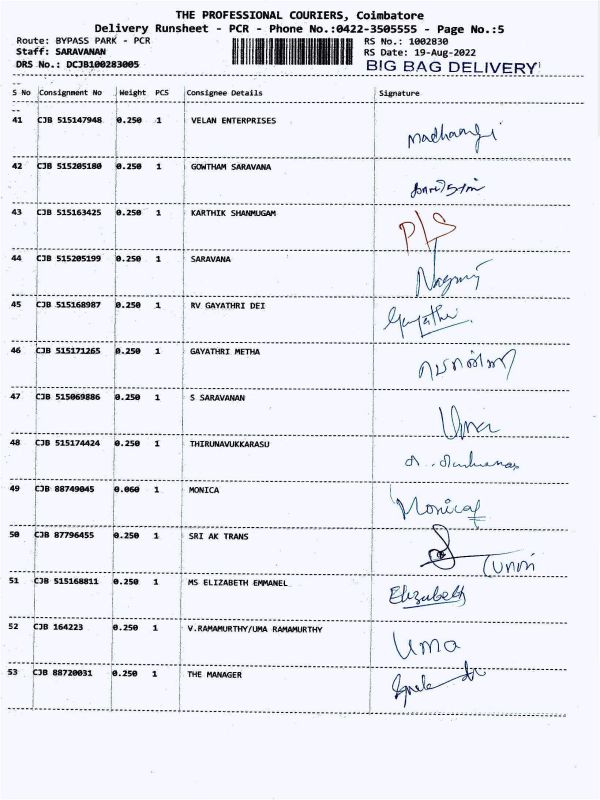 THE PROFESSIONAL COURIERS, Coimbatore
Delivery Runsheet - PCR - Phone No.:0422-3505555 - Page No.:5
Route: BYPASS PARK - PCR RS No.: 1002830
Staff: SARAVANAN RS Date: 19-Aug-2022
DRS No.: DCJB100283005 BIG BAG DELIVERY
S No Consignment No Weight PCS Consignee Details Signature
41 CJB 515147948 0.250 1 VELAN ENTERPRISES
42 CJB 515205180 0.250 1 GOWTHAM SARAVANA
43 CJB 515163425 0.250 1 KARTHIK SHANMUGAM
44 CJB 515205199 0.250 1 SARAVANA
45 CJB 515168987 0.250 1 RV GAYATHRI DEI Gayathri
46 CJB 515171265 0.250 1 GAYATHRI METHA
47 CJB 515069886 0.250 1 S SARAVANAN Uma
48 CJB 515174424 0.250 1 THIRUNAVUKKARASU
49 CJB 88749045 0.060 1 MONICA Monica
50 CJB 87796455 0.250 1 SRI AK TRANS
51 CJB 515168811 0.250 1 MS ELIZABETH EMMANEL Elizabeth
52 CJB 164223 0.250 1 V.RAMAMURTHY/UMA RAMAMURTHY Uma
53 CJB 88720031 0.250 1 THE MANAGER